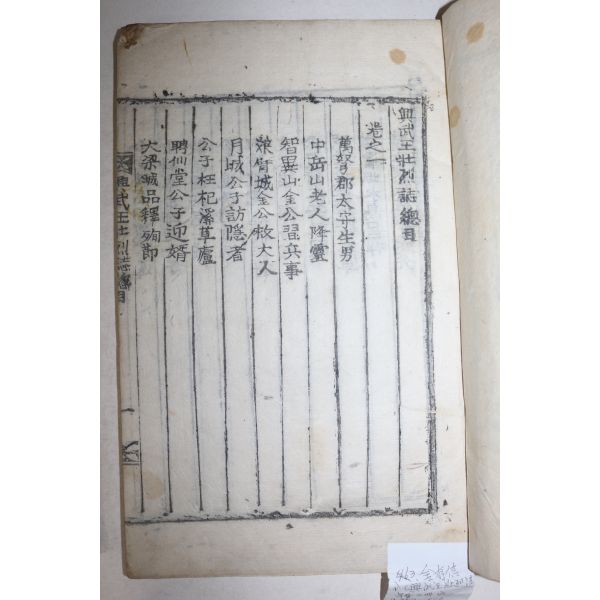 興武王壯烈誌總目
卷之一
萬弩郡太守生男
中岳山老人降靈
智異山金公習兵事
娘臂城金公救大人
月城公子訪隱者
公子枉杞溪草廬
聘仙堂公子迎婿
大梁城品釋殉節
興武王壯烈誌總目
一